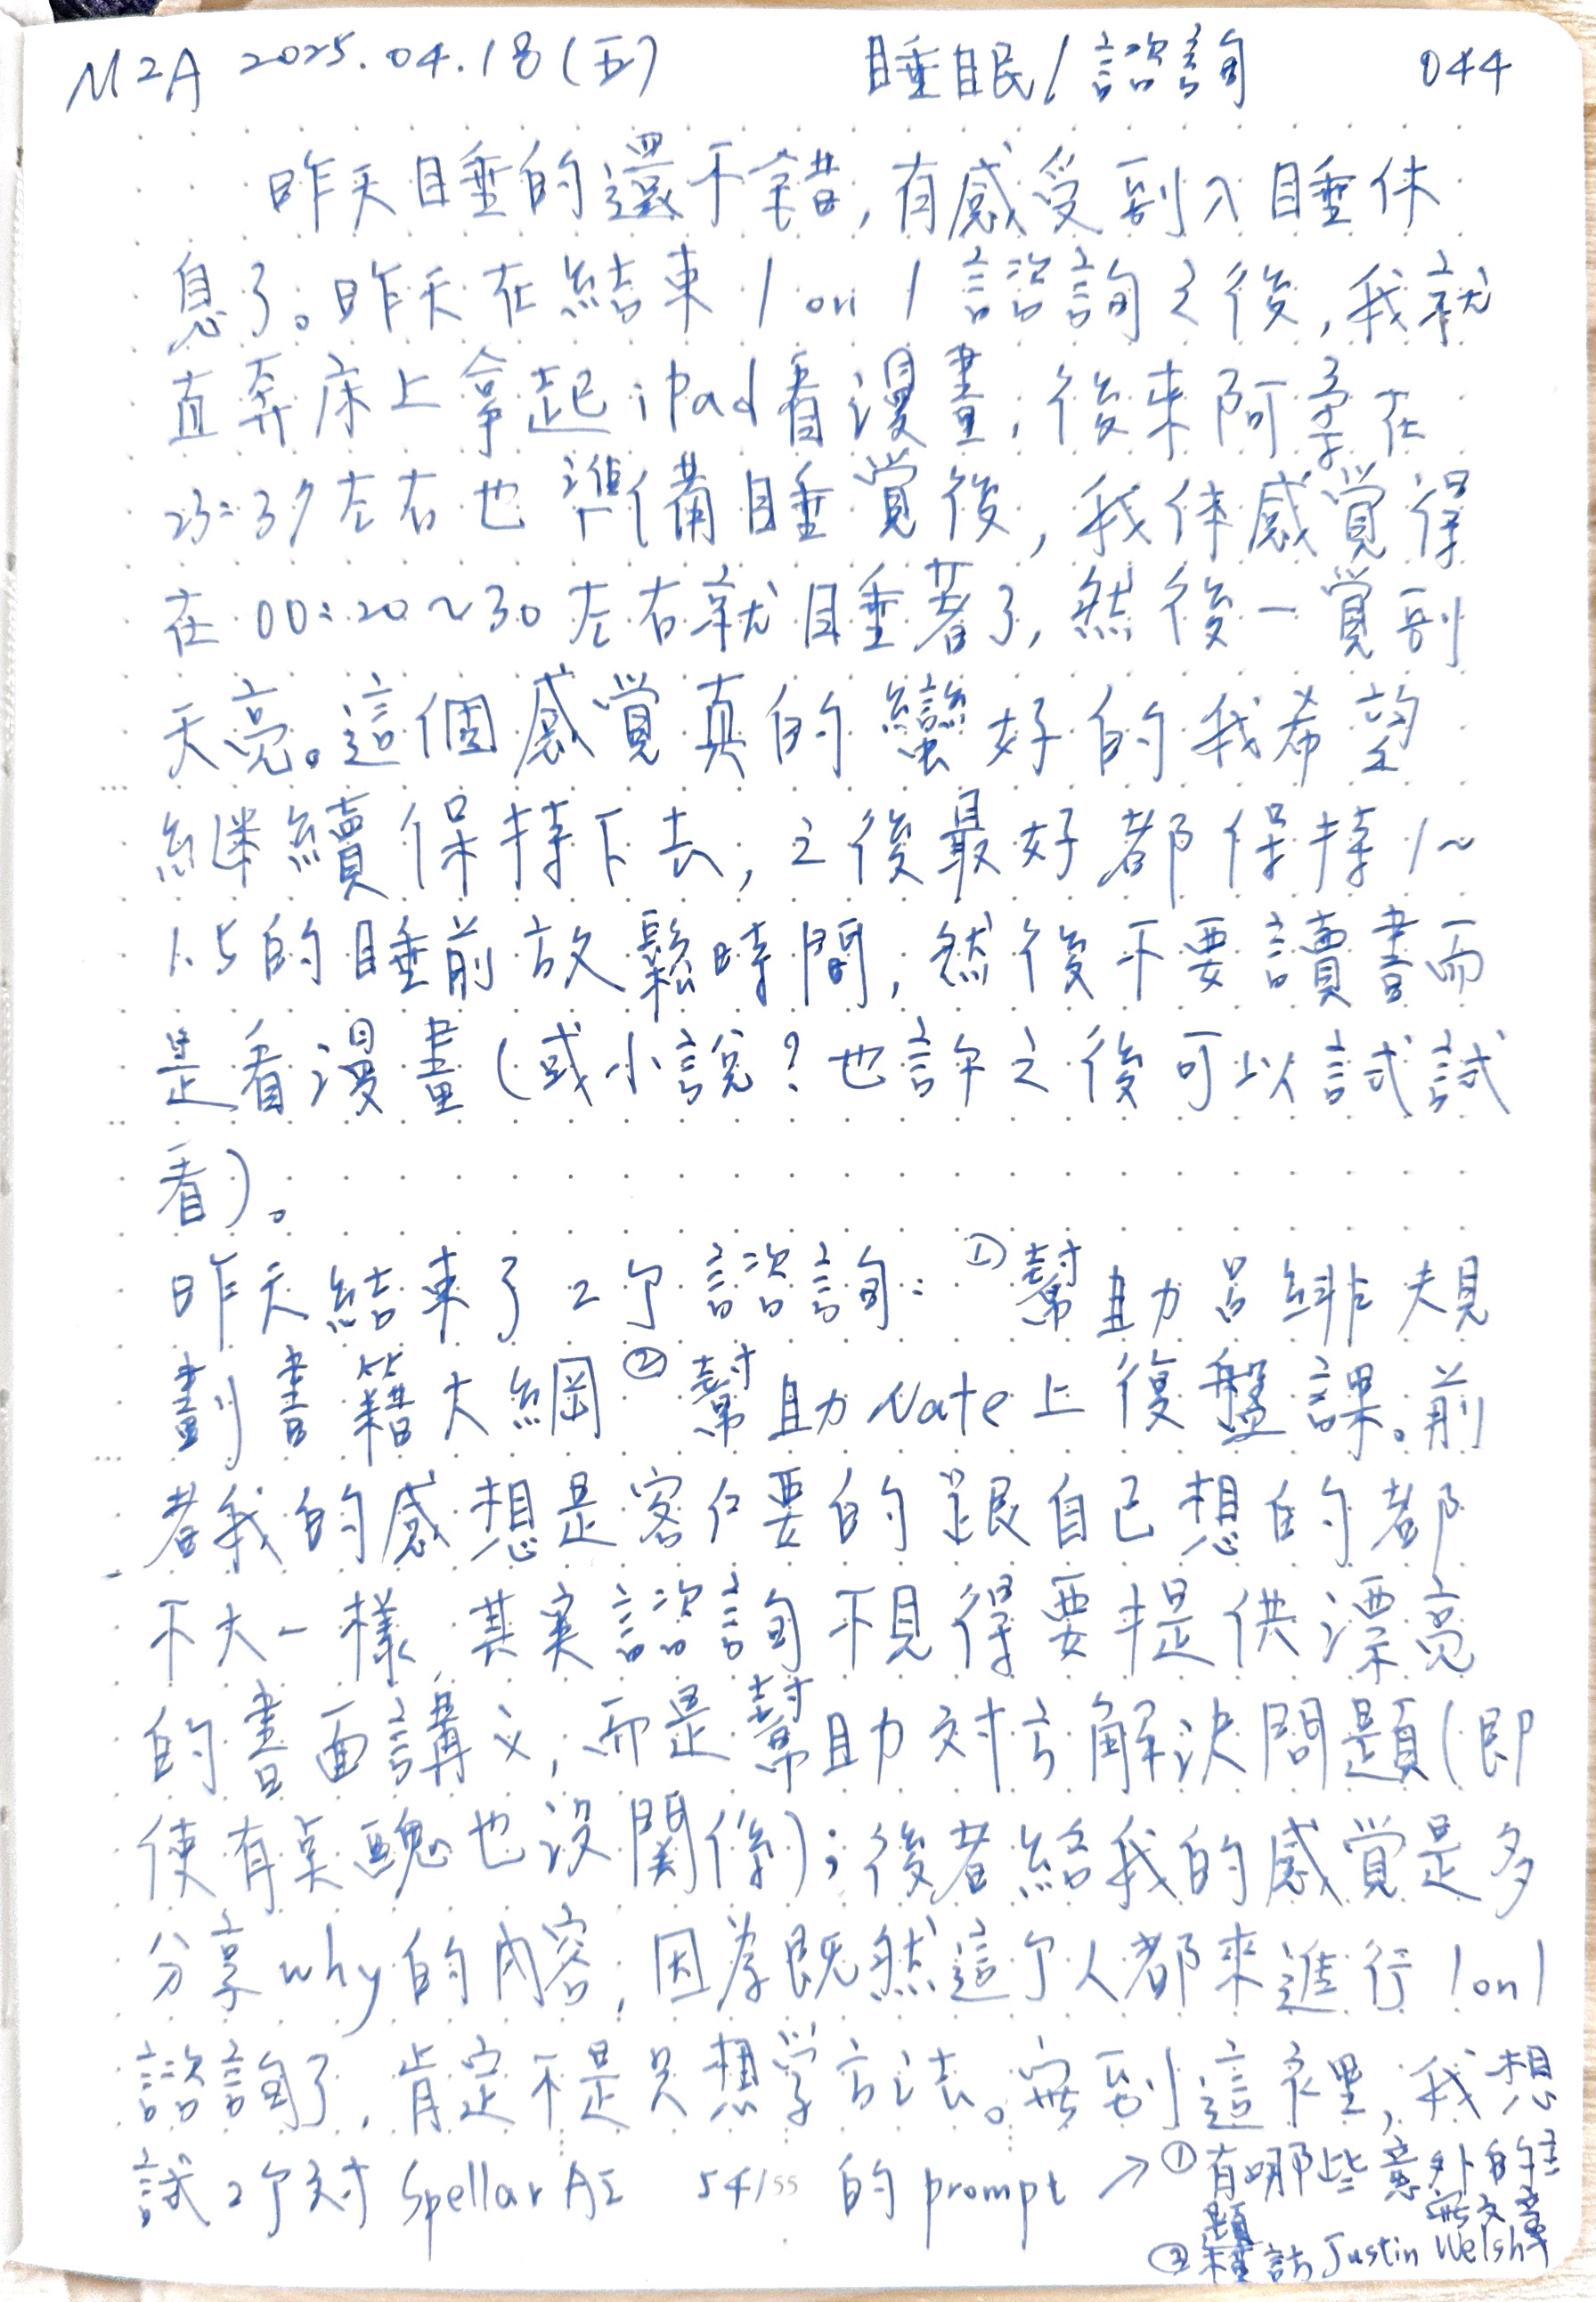 M2A 2025.04.18(五) 睡眠/諮詢 044
昨天睡的還不錯,有感受到入睡休
息了。昨天在結束1 on 1諮詢之後,我就
直奔床上拿起iPad看漫畫,後來阿季在
23:37左右也準備睡覺後,我体感覺得
在00:20~30左右就睡著了,然後一覺到
天亮。這個感覺真的蠻好的我希望
繼續保持下去,之後最好都保持1~
1.5的睡前放鬆時間,然後不要讀書而
是看漫畫(或小說?也許之後可以試試
看)。
昨天結束了2个諮詢:①幫助呂緋規
劃書籍大綱②幫助Nate上復盤課。前
者我的感想是客户要的跟自己想的都
不大一樣,其实諮詢不見得要提供漂亮
的書面講义,而是幫助对方解決問題(即
使有莫醜也沒關係);後者給我的感覺是多
分享why的內容,因為既然這个人都來進行1on1
諮詢了,肯定不是只想学方法。寫到這裡,我想
試2个对Spellar AI 54/55 的prompt→①有哪些意外的主
題寫文章
②模訪Justin Welsh